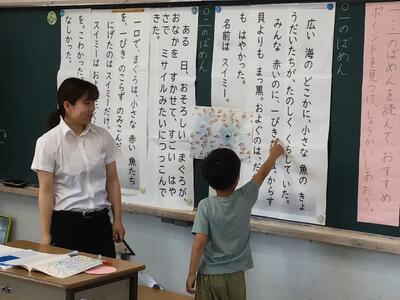 ・二のばめんを読んで、おすすめ
ポイントを見つけ、しょうかいしあおう。
〇一のばめん
広い 海の どこかに、小さな 魚の きょ
うだいたちが、たのしく くらして いた。
みんな 赤いのに、一ぴき
からす
貝よりも まっ黒。およぐのは、だ
も はやかった。
名前は スイミー。
〇二のばめん
ある 日、おそろしい まぐろが、
おなかを すかせて、すごい はや
さで ミサイルみたいに つっこんで
きた。
一口で、まぐろは、小さな 赤い 魚たち
を、一ぴき のこらず のみこんだ。
にげたのは スイミーだけ。
スイミーは およ
を。こわかった
なしかった。